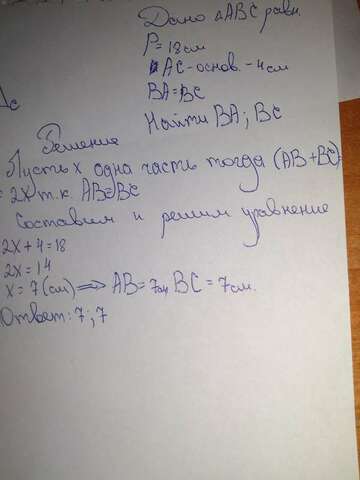 Дано △ABC равн.
P = 18 см
AC - основ. - 4 см
BA = BC
Найти BA; BC
с
Решение
Пусть x одна часть тогда (AB + BC)
= 2x т.к. AB = BC
Составим и решим уравнение
2x + 4 = 18
2x = 14
x = 7 (см) ⟹ AB = 7см BC = 7 см.
Ответ: 7; 7